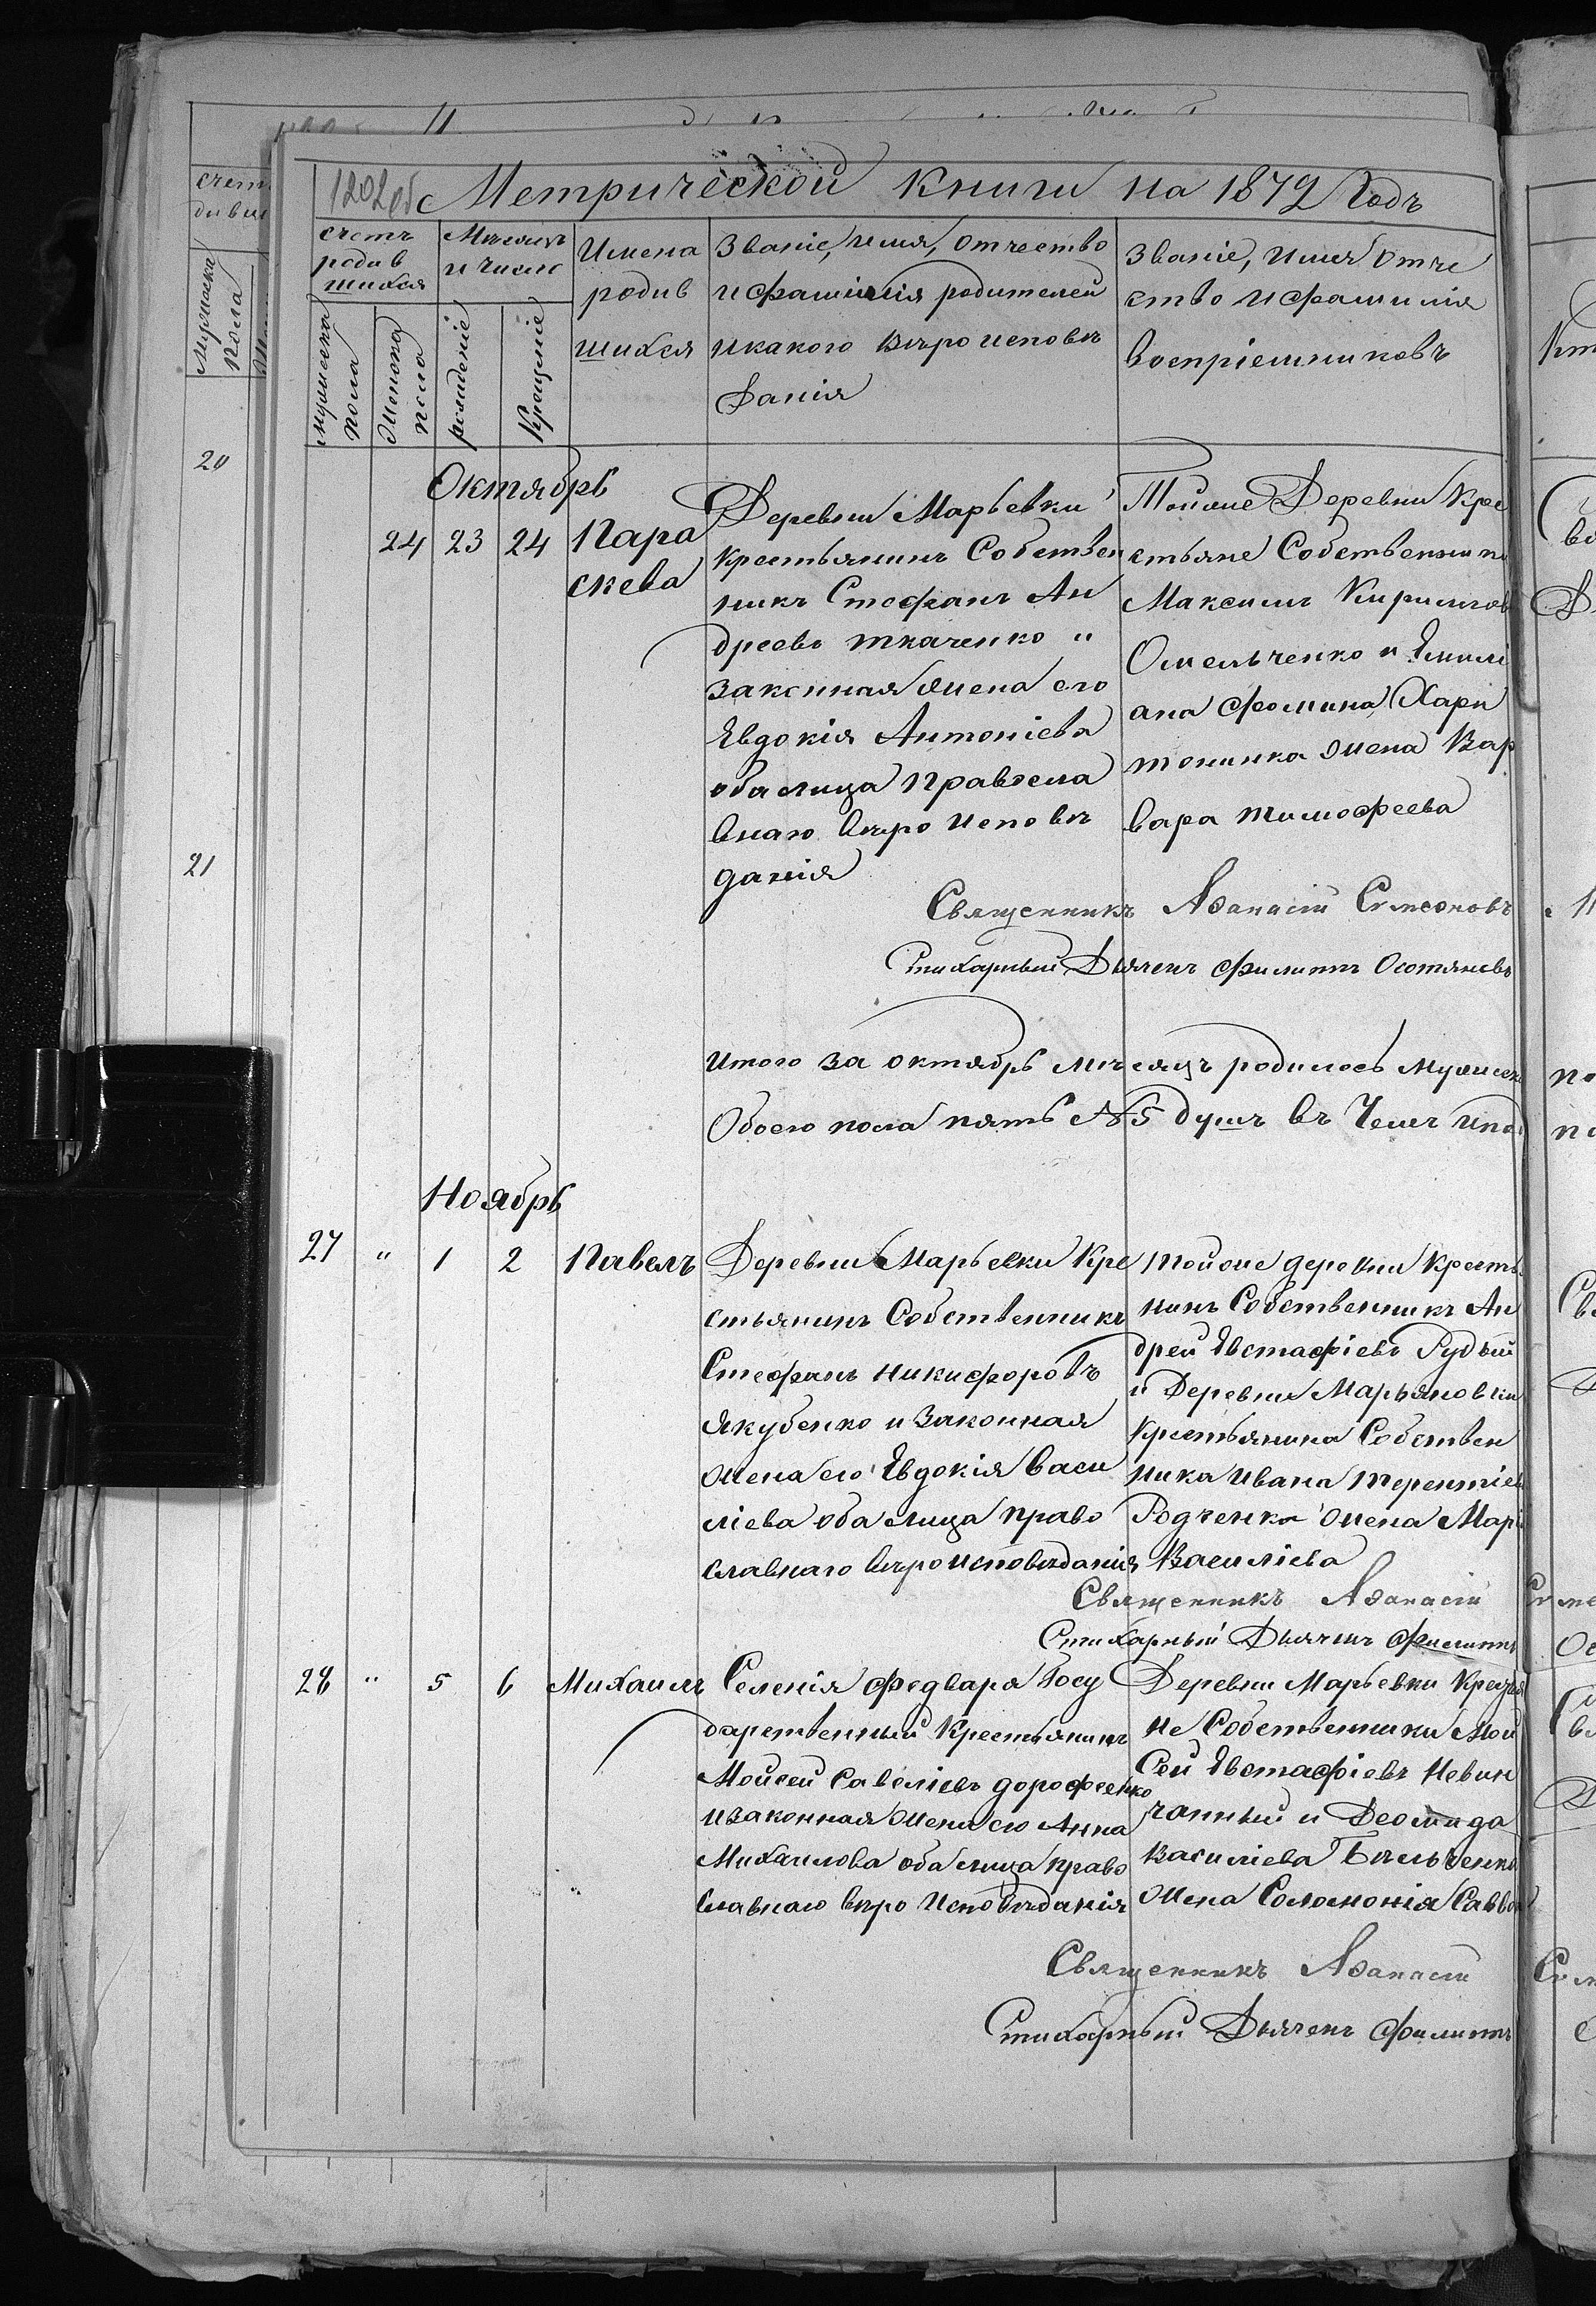 1202 об
Метрической Книги на 1879 Годъ
счетъ родив шихся
Мѣсяцъ и число
Имена родив шихся
Званіе, имя, отчество и фамилія родителей и какого вѣро исповѣ данія
Званіе, имя отче ство и фамилія воспріемниковъ
мужеска пола
Женска пола
рожденіе
Крещеніе
Октябрь
24 23 24
Пара
скева
Деревни Марьевки
крестьянинъ Собствен
никъ Стефанъ Ан
дреевъ ткаченко и
законная жена его
Евдокія Антоніева
оба лица Правосла
внаго вѣро исповѣ
данія
Тойже Деревни Кре
стьяне Собственни
Максимъ Кирилов
Омельченко и Емилі
ана Фомина Хари
тоника жена Вар
вара тимофеева
Священникъ Аѳанасій Симоновъ
Стихарный Дьячекъ Филиппъ
Итого за октябрь мѣсяцъ родилось мужеск
Обоего пола пять № 5 душъ въ Чемъ и по
Ноябрь
27 " 1 2
Павелъ
Деревни Марьевки Кре
стьянинъ Собственникъ
Стефанъ Никифоровъ
Якубенко и Законная
жена его Евдокія Васи
ліева оба лица право
славнаго вѣроисповѣданія
тойже деревни Кресть
нинъ Собственникъ Ан
дрей Евстафіевъ Рудый
и Деревни Марьяновки
Крестьянина Собствен
ника Ивана терентіев
Родченка жена Марі
Василіева
Священникъ Аѳанасій
Стихарный Дьячекъ Филиппъ
28 " 5 6
Михаилъ
Селенія Федвара Госу
дарственный Крестьянинъ
Мойсей Савеліевъ дорофеенко
и законная жена его Анна
Михаилова оба лица право
славнаго вѣро Исповѣданія
Деревни Марьевки Крестья
не Собственники Мои
сей Евстафіевъ Невин
чанный и Деомида
Василіева Бѣльченка
жена Соломонія Савво
Священникъ Аѳанасій
Стихарный Дьячекъ Филиппъ
20
21